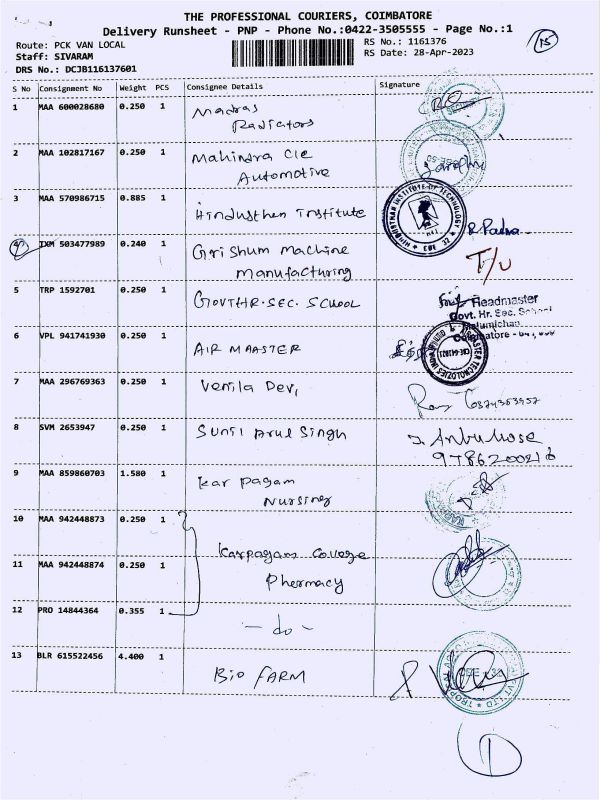 THE PROFESSIONAL COURIERS, COIMBATORE
Delivery Runsheet - PNP - Phone No.:0422-3505555 - Page No.:1
Route: PCK VAN LOCAL
RS No.: 1161376
15
Staff: SIVARAM
RS Date: 28-Apr-2023
DRS No.: DCJB116137601
S No Consignment No Weight PCS Consignee Details Signature
1 MAA 600028680 0.250 1 Madras
Radiators
2 MAA 102817167 0.250 1 Mahindra CIE
Automotive
3 MAA 570986715 0.885 1 Hindusthan Institute
HINDUSTHAN INSTITUTE OF TECHNOLOGY
CBE 32
4 IXM 503477989 0.240 1 Grishum Machine
Manufacturing
T/U
5 TRP 1592701 0.250 1 GOVT HR. SEC. SCHOOL
Headmaster
Govt. Hr. Sec. School
Coimbatore
6 VPL 941741930 0.250 1 AIR MAASTER
7 MAA 296769363 0.250 1 Venila Devi
8 SVM 2653947 0.250 1 Sunil Arul Singh
9 MAA 859860703 1.580 1 Kar pagam
Nursing
10 MAA 942448873 0.250 1
11 MAA 942448874 0.250 1 Karpagam College
Phermacy
12 PRO 14844364 0.355 1 - do -
13 BLR 615522456 4.400 1 BIO FARM